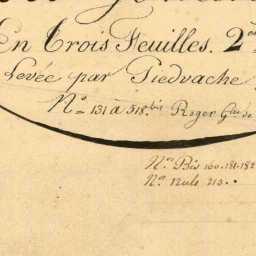 En Trois Feuilles. 2
Levée par Piedvache
No 131 à 518.bis Roger Gm de
Nos Bis 160. 181. 182
No Nuls 213..